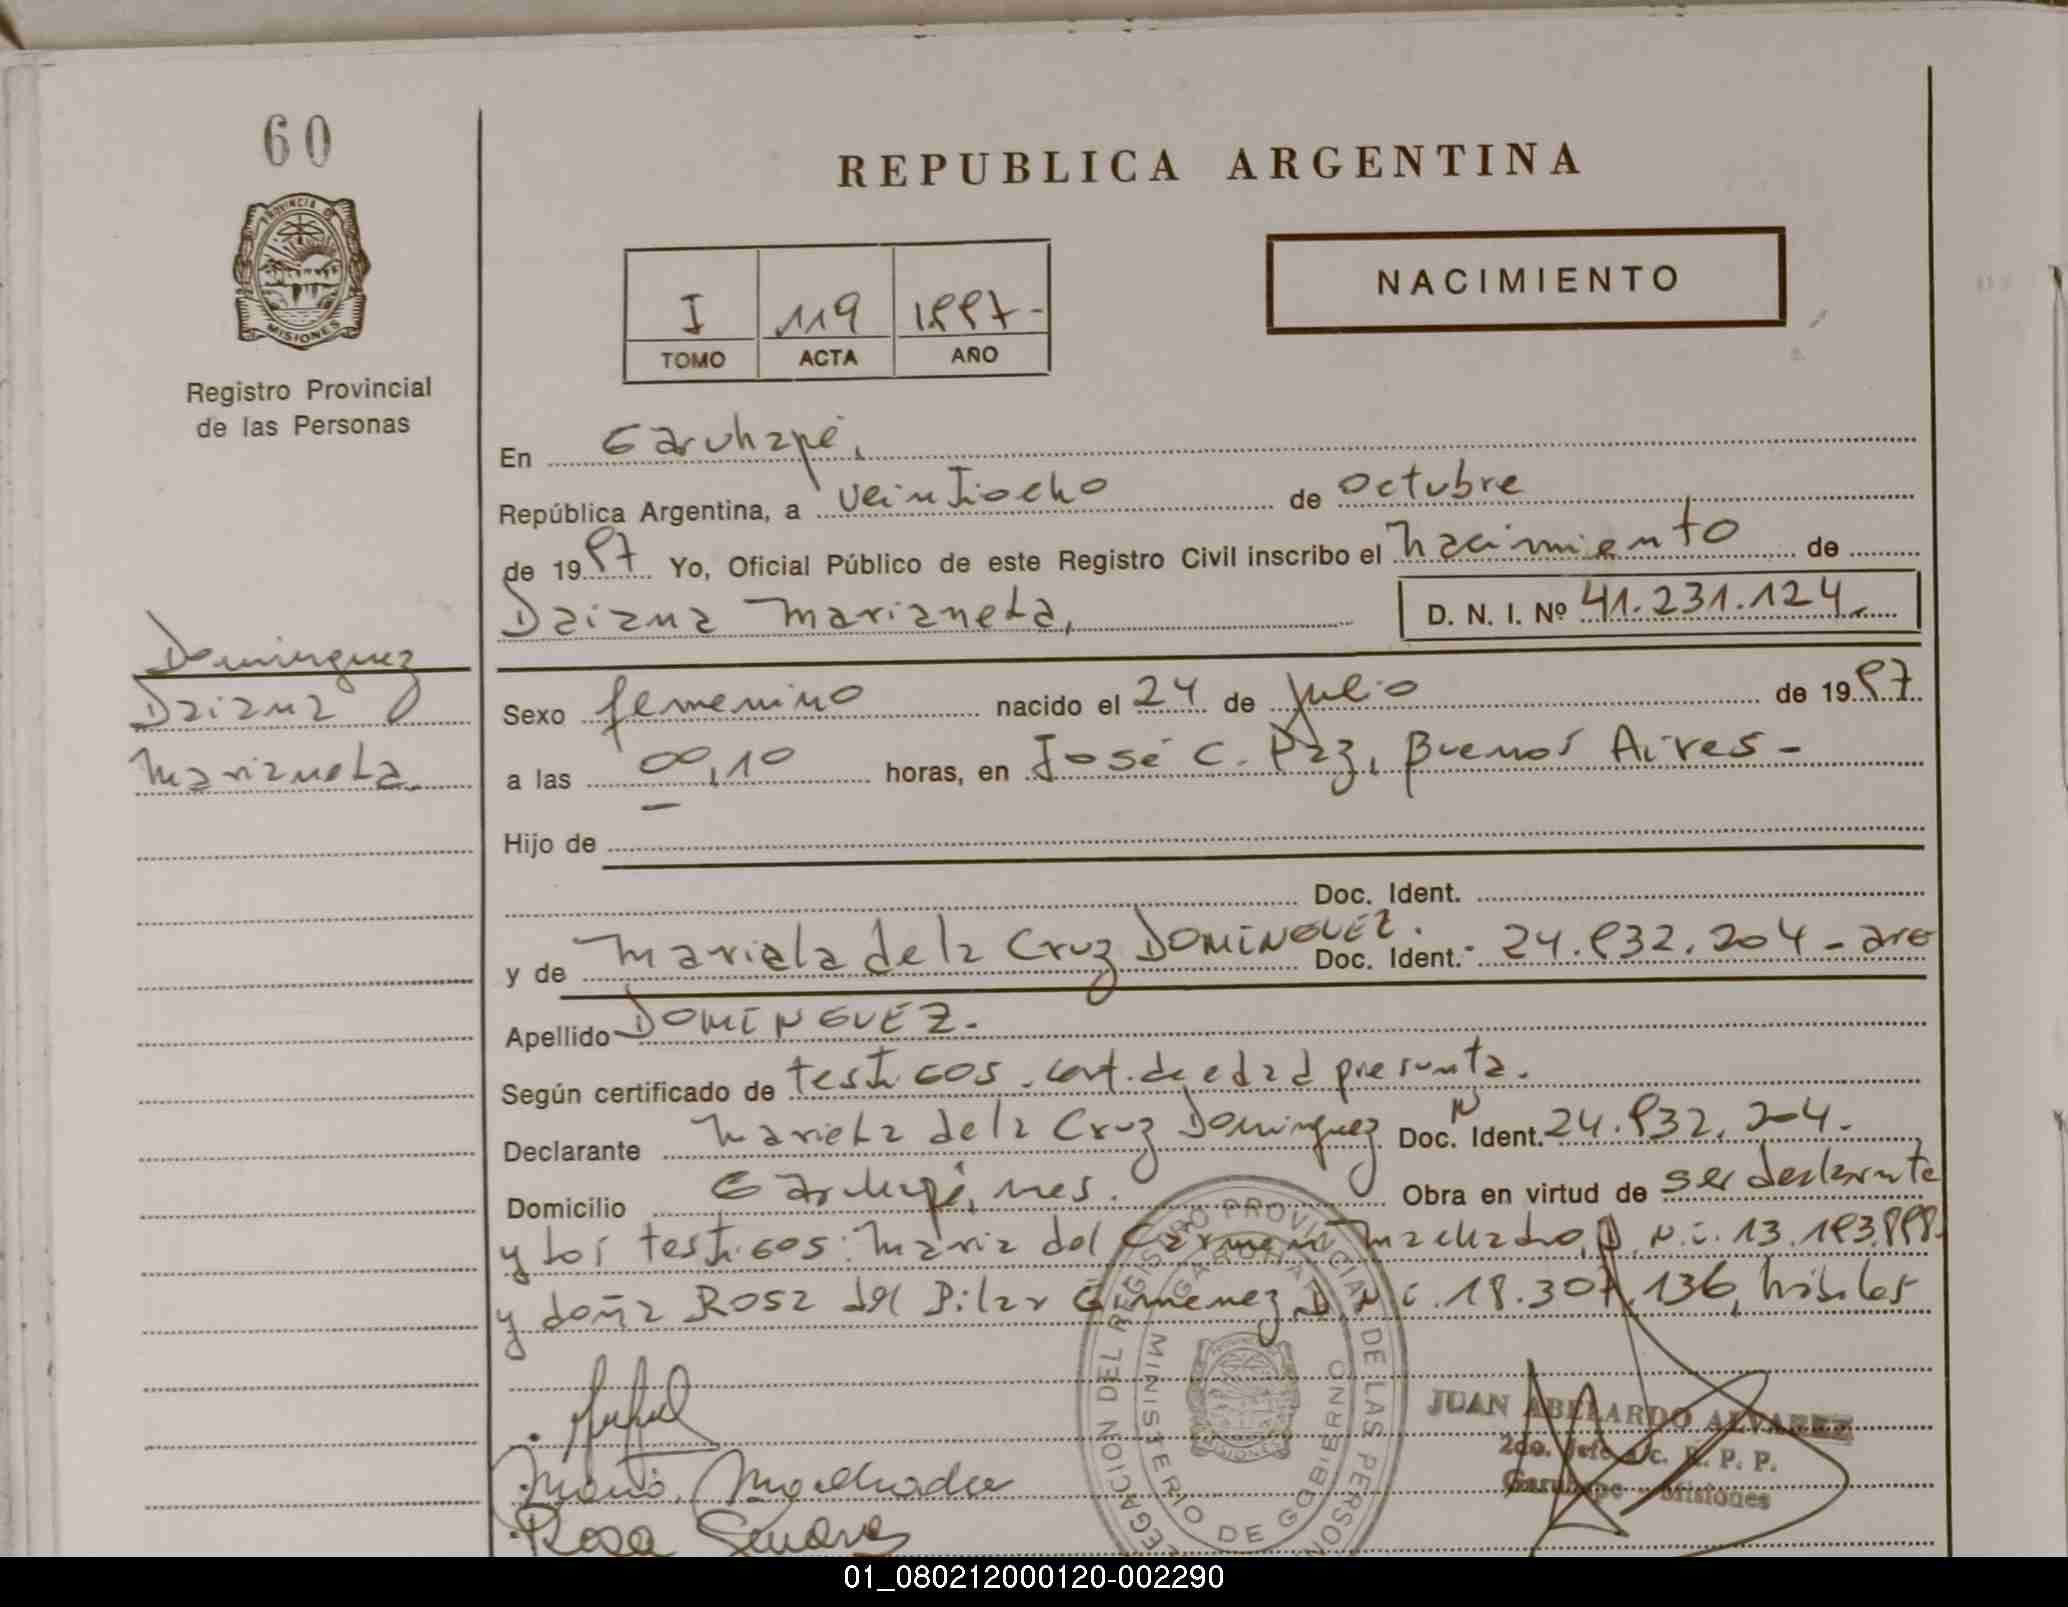 60
REPUBLICA ARGENTINA
PROVINCIA DE
MISIONES
NACIMIENTO
I 119 1997-
TOMO ACTA AÑO
Registro Provincial
de las Personas
En Garuhapé,
República Argentina, a veintiocho de octubre
de 1997 Yo, Oficial Público de este Registro Civil inscribo el nacimiento de
Daiana Marianela, D. N. I. Nº 41.231.124.
Dominguez
Daiana
Marianela.
Sexo femenino nacido el 24 de julio de 1997
a las 00,10 horas, en José C. Paz, Buenos Aires -
Hijo de
Doc. Ident.
y de Mariela de la Cruz DOMINGUEZ. Doc. Ident. 24.932.204 - arg
Apellido DOMINGUEZ.
Según certificado de testigos. cert. de edad presunta.
Declarante Mariela de la Cruz Dominguez Doc. Ident. 24.932.204.
Domicilio Garuhapé, mes. Obra en virtud de ser declarante
y los testigos: Maria del Carmen Machado, D.N.i. 13.193.998.
y doña Rosa del Pilar Gimenez D.N.i. 18.307.136, hábiles
DELEGACION DEL REGISTRO PROVINCIAL DE LAS PERSONAS
GARUHAPE
MINISTERIO DE GOBIERNO
MISIONES
JUAN ABELARDO ALVAREZ
2do. Jefe a/c. R. P. P.
Garuhape - Misiones
Maria Machado
Rosa
01_080212000120-002290